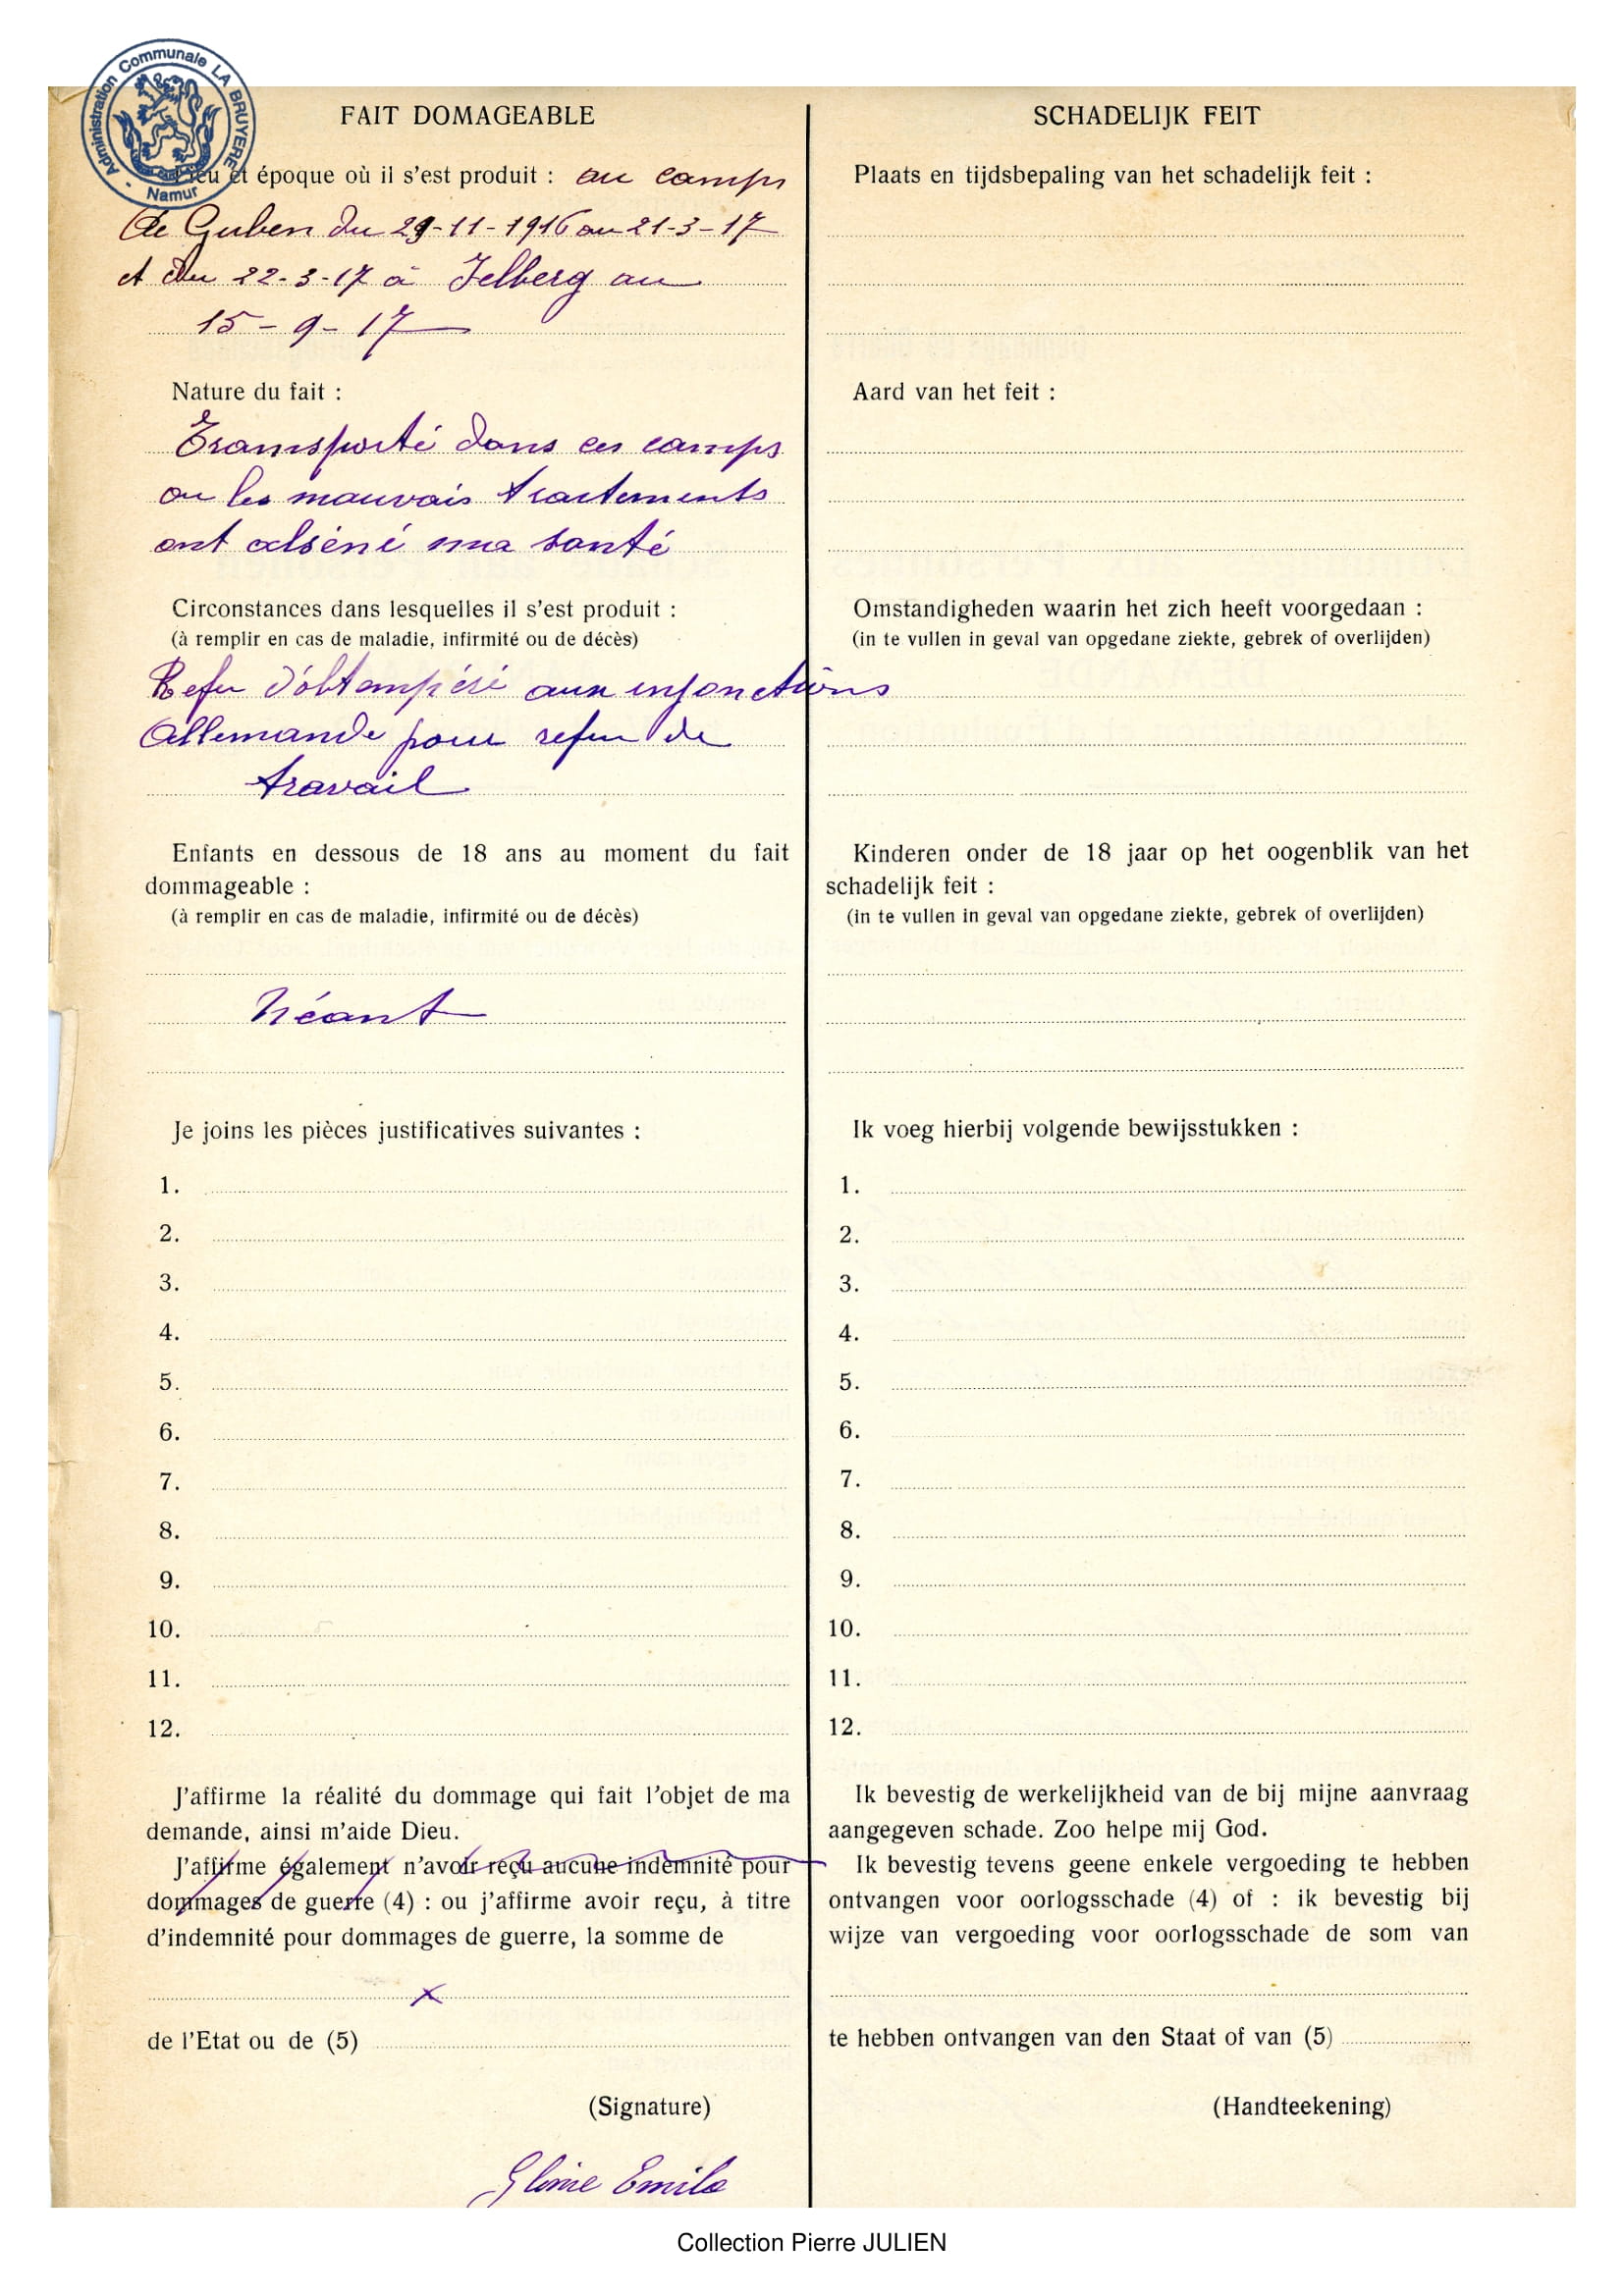 Administration Communale LA BRUYERE - Namur -
FAIT DOMAGEABLE
Lieu et époque où il s'est produit : au camps
de Guben du 29-11-1916 au 21-3-17
et du 22-3-17 à Jelberg au
15-9-17
Nature du fait :
Transporté dans ces camps
ou les mauvais traitements
ont alséné ma santé
Circonstances dans lesquelles il s'est produit :
(à remplir en cas de maladie, infirmité ou de décès)
Refu d'obtampéré aux injonctions
Allemande pour refu de
travail
Enfants en dessous de 18 ans au moment du fait
dommageable :
(à remplir en cas de maladie, infirmité ou de décès)
Néant
Je joins les pièces justificatives suivantes :
1.
2.
3.
4.
5.
6.
7.
8.
9.
10.
11.
12.
J'affirme la réalité du dommage qui fait l'objet de ma
demande, ainsi m'aide Dieu.
J'affirme également n'avoir reçu aucune indemnité pour
dommages de guerre (4) : ou j'affirme avoir reçu, à titre
d'indemnité pour dommages de guerre, la somme de
x
de l'Etat ou de (5)
(Signature)
Gloire Emile
SCHADELIJK FEIT
Plaats en tijdsbepaling van het schadelijk feit :
Aard van het feit :
Omstandigheden waarin het zich heeft voorgedaan :
(in te vullen in geval van opgedane ziekte, gebrek of overlijden)
Kinderen onder de 18 jaar op het oogenblik van het
schadelijk feit :
(in te vullen in geval van opgedane ziekte, gebrek of overlijden)
Ik voeg hierbij volgende bewijsstukken :
1.
2.
3.
4.
5.
6.
7.
8.
9.
10.
11.
12.
Ik bevestig de werkelijkheid van de bij mijne aanvraag
aangegeven schade. Zoo helpe mij God.
Ik bevestig tevens geene enkele vergoeding te hebben
ontvangen voor oorlogsschade (4) of : ik bevestig bij
wijze van vergoeding voor oorlogsschade de som van
te hebben ontvangen van den Staat of van (5)
(Handteekening)
Collection Pierre JULIEN